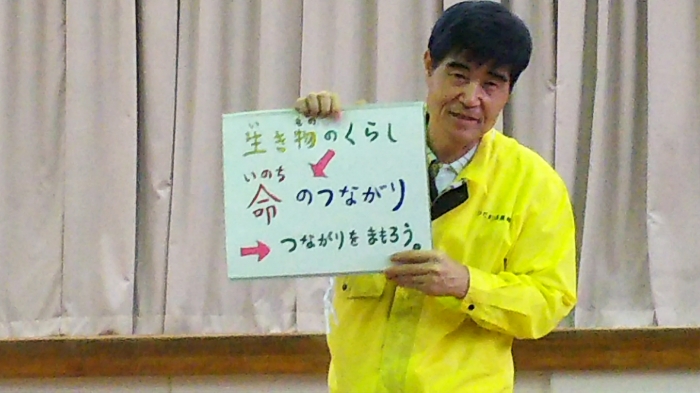 い もの
生き物のくらし
いのち
命 のつながり
つながりをまもろう。